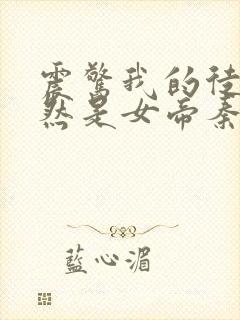 震驚我的徒
然是女帝秦
藍心湄